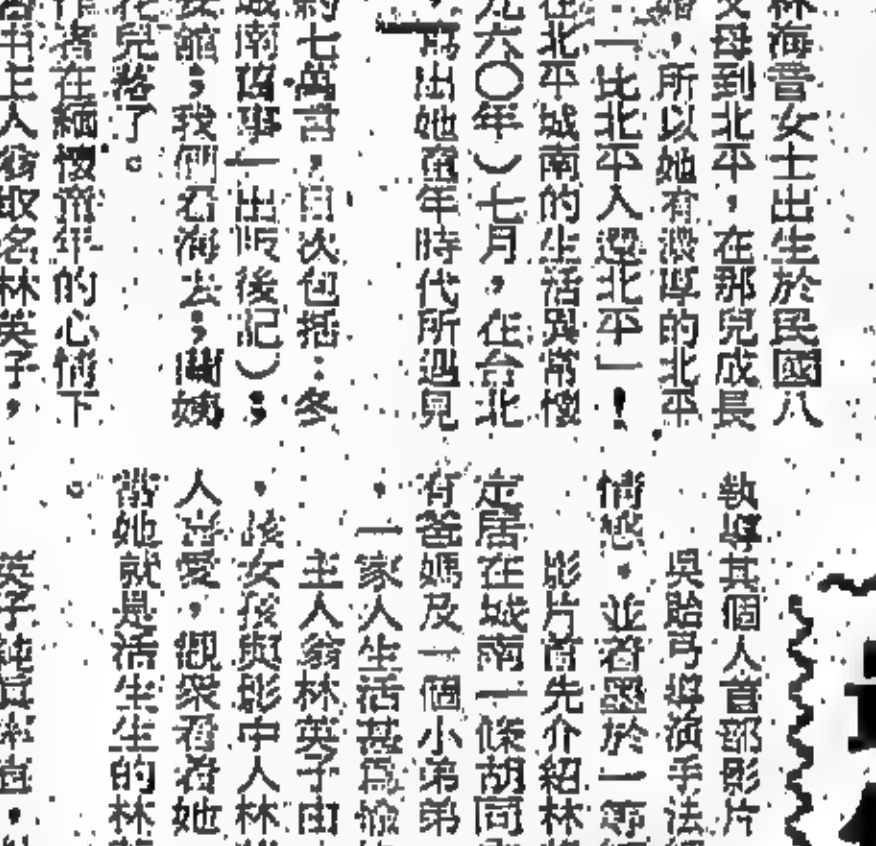 林海音女士出生於民國八
父母到北平，在那兒成長
，所以她有濃厚的北平
「比北平人還北平」！
在北平城南的生活異常懷
九六〇年）七月，在台北
，寫出她童年時代所遇見
約七萬言，目次包括：冬
城南故事」出版後記）；
我們看海去；蘭姨
花兒落了。
作者在緬懷童年的心情下
書主人翁取名林英子，
執導其個人首部影片
吳貽弓導演手法
情感，並着墨於一
影片首先介紹林
定居在城南一條胡同
有爸媽及一個小弟弟
，一家人生活甚為愉
主人翁林英子由
，該女孩與影中人林
人喜愛，觀眾看着她
當她就是活生生的林
。
英子純真率直，